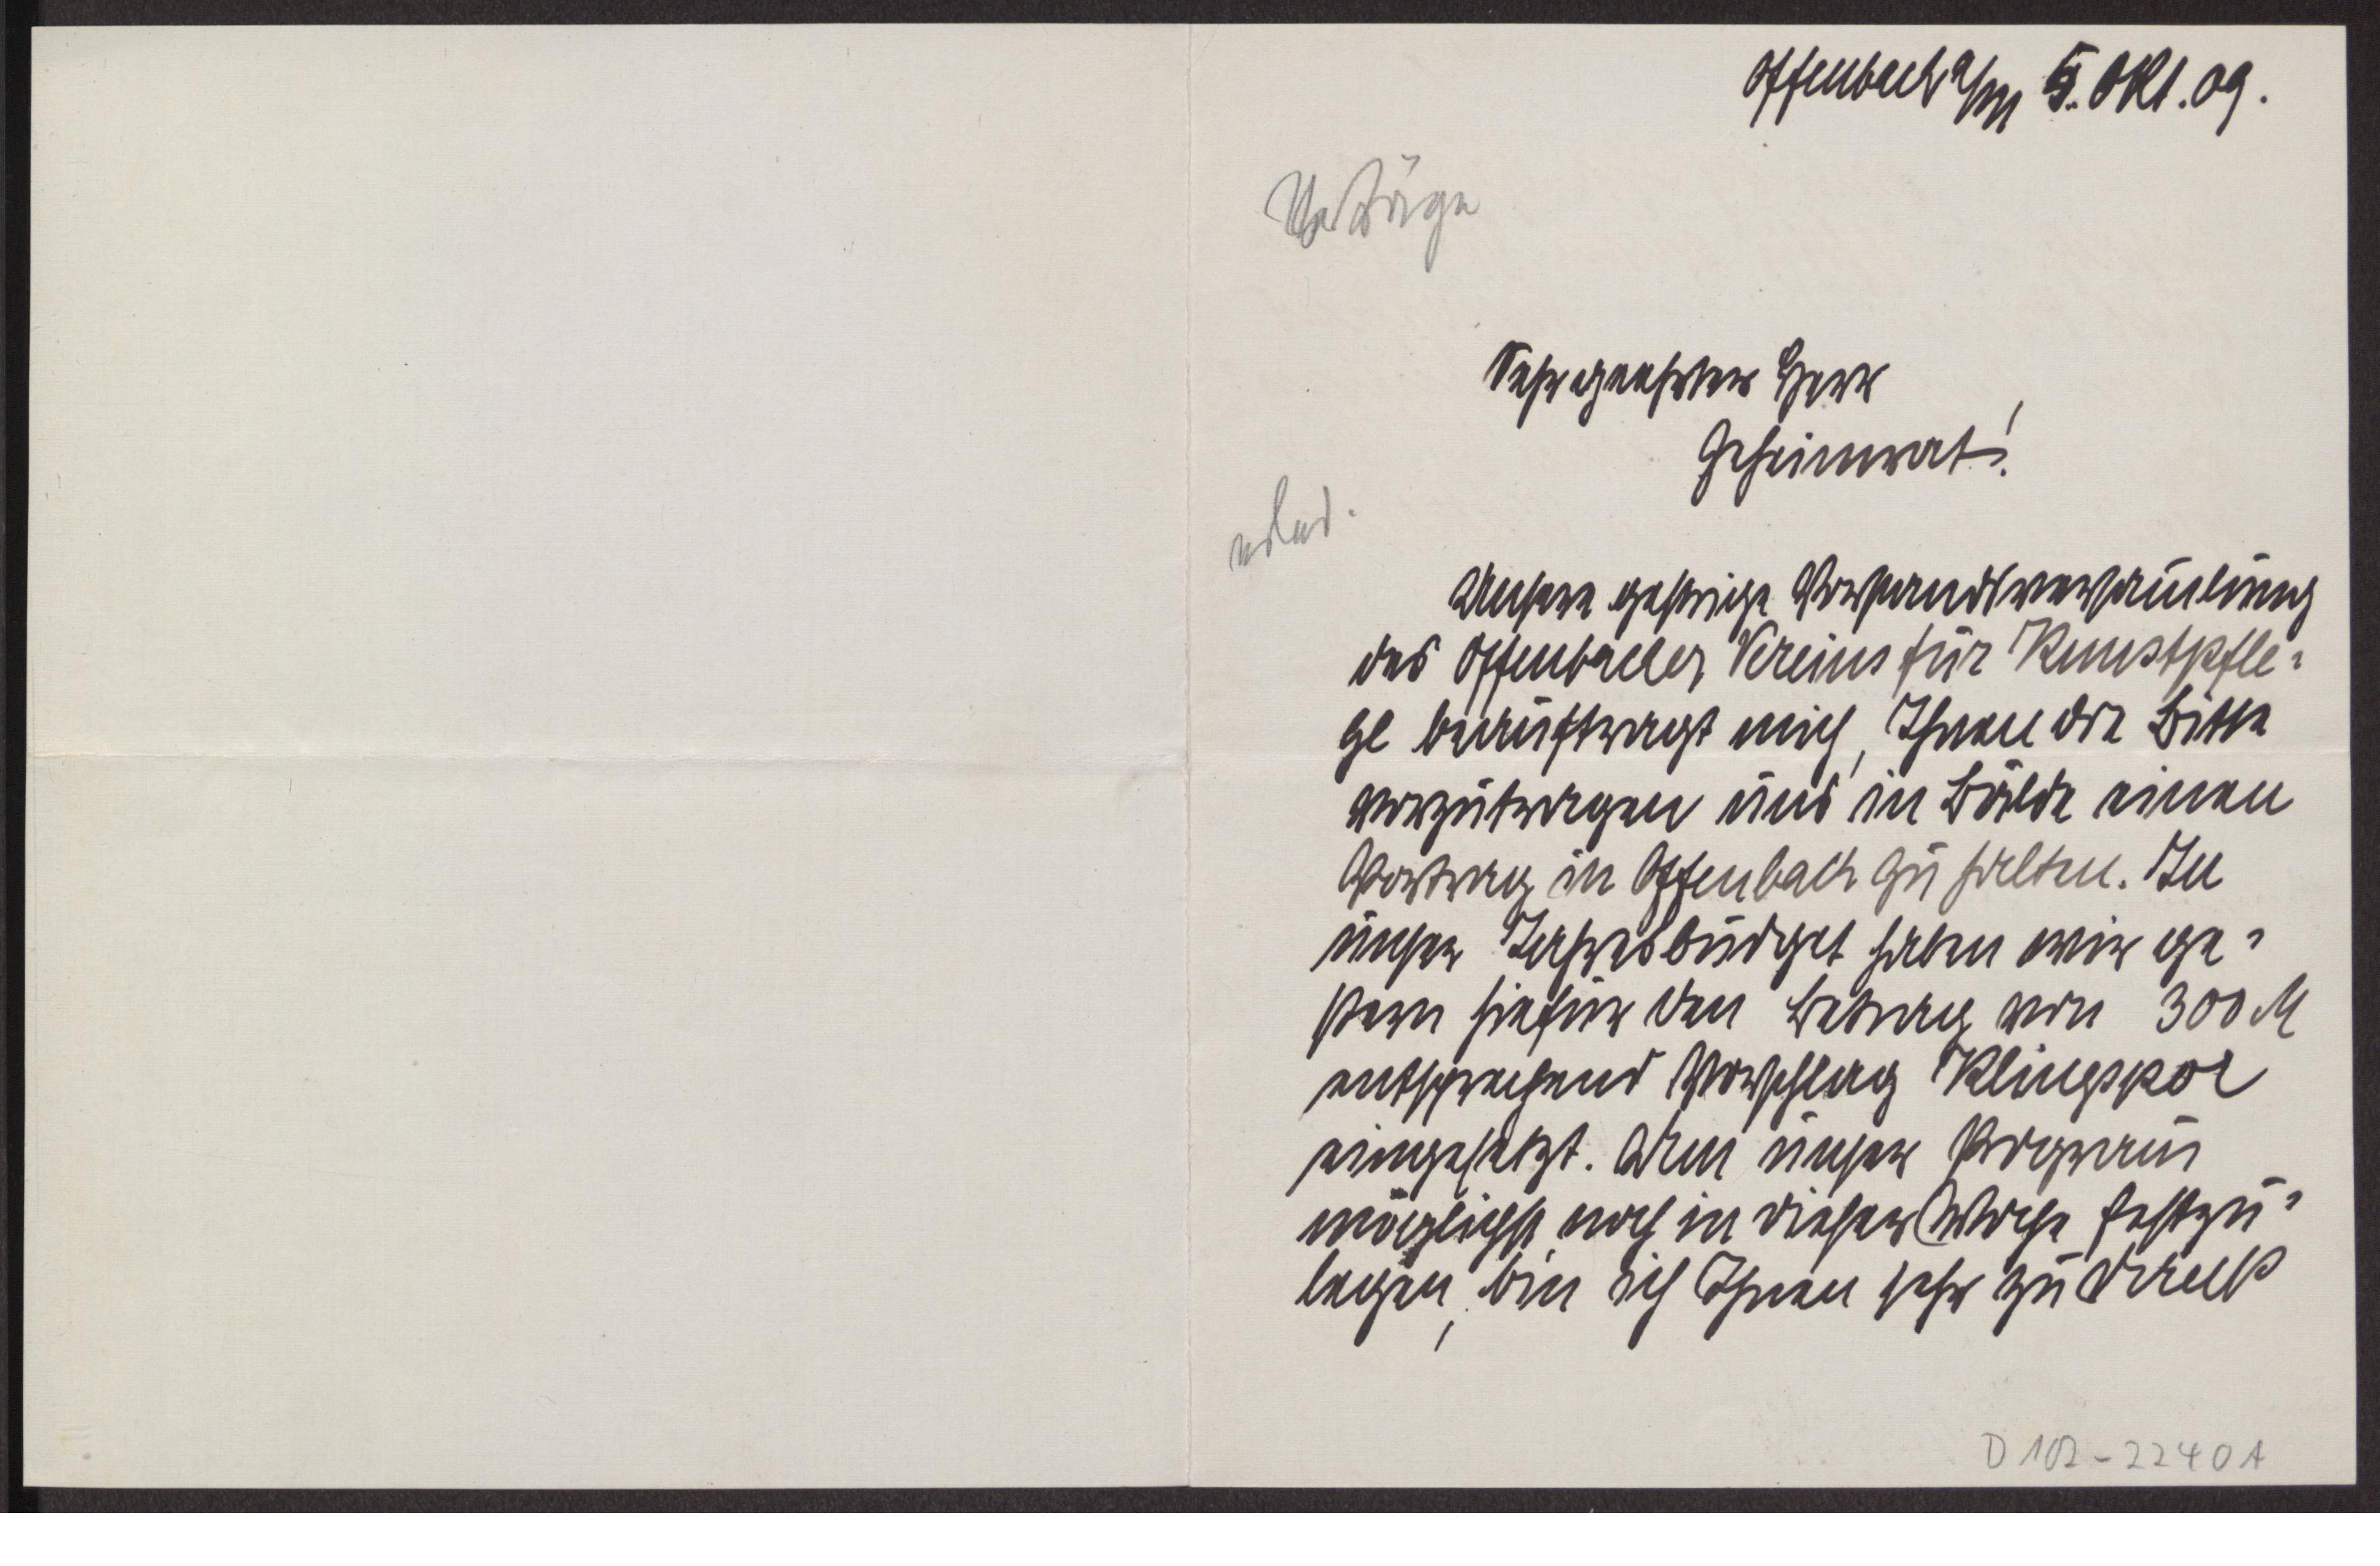 Offenbach a/M 5. Okt. 09.
Vorträge
Sehr geehrter Herr
Geheimrat!
erled.
Unsere gestrige Vorstandsversam̄lung
des Offenbacher Vereins für Kunstpfle-
ge beauftragt mich, Ihnen die Bitte
vorzutragen uns in Bälde einen
Vortrag in Offenbach zu halten. In
unser Jahresbudget haben wir ge-
stern hiefür den Betrag von 300 M
entsprechend Vorschlag Klingspor
eingesetzt. Um unser Program̄
möglichst noch in dieser Woche festzu-
legen, bin ich Ihnen sehr zu Dank
D 102-2240A